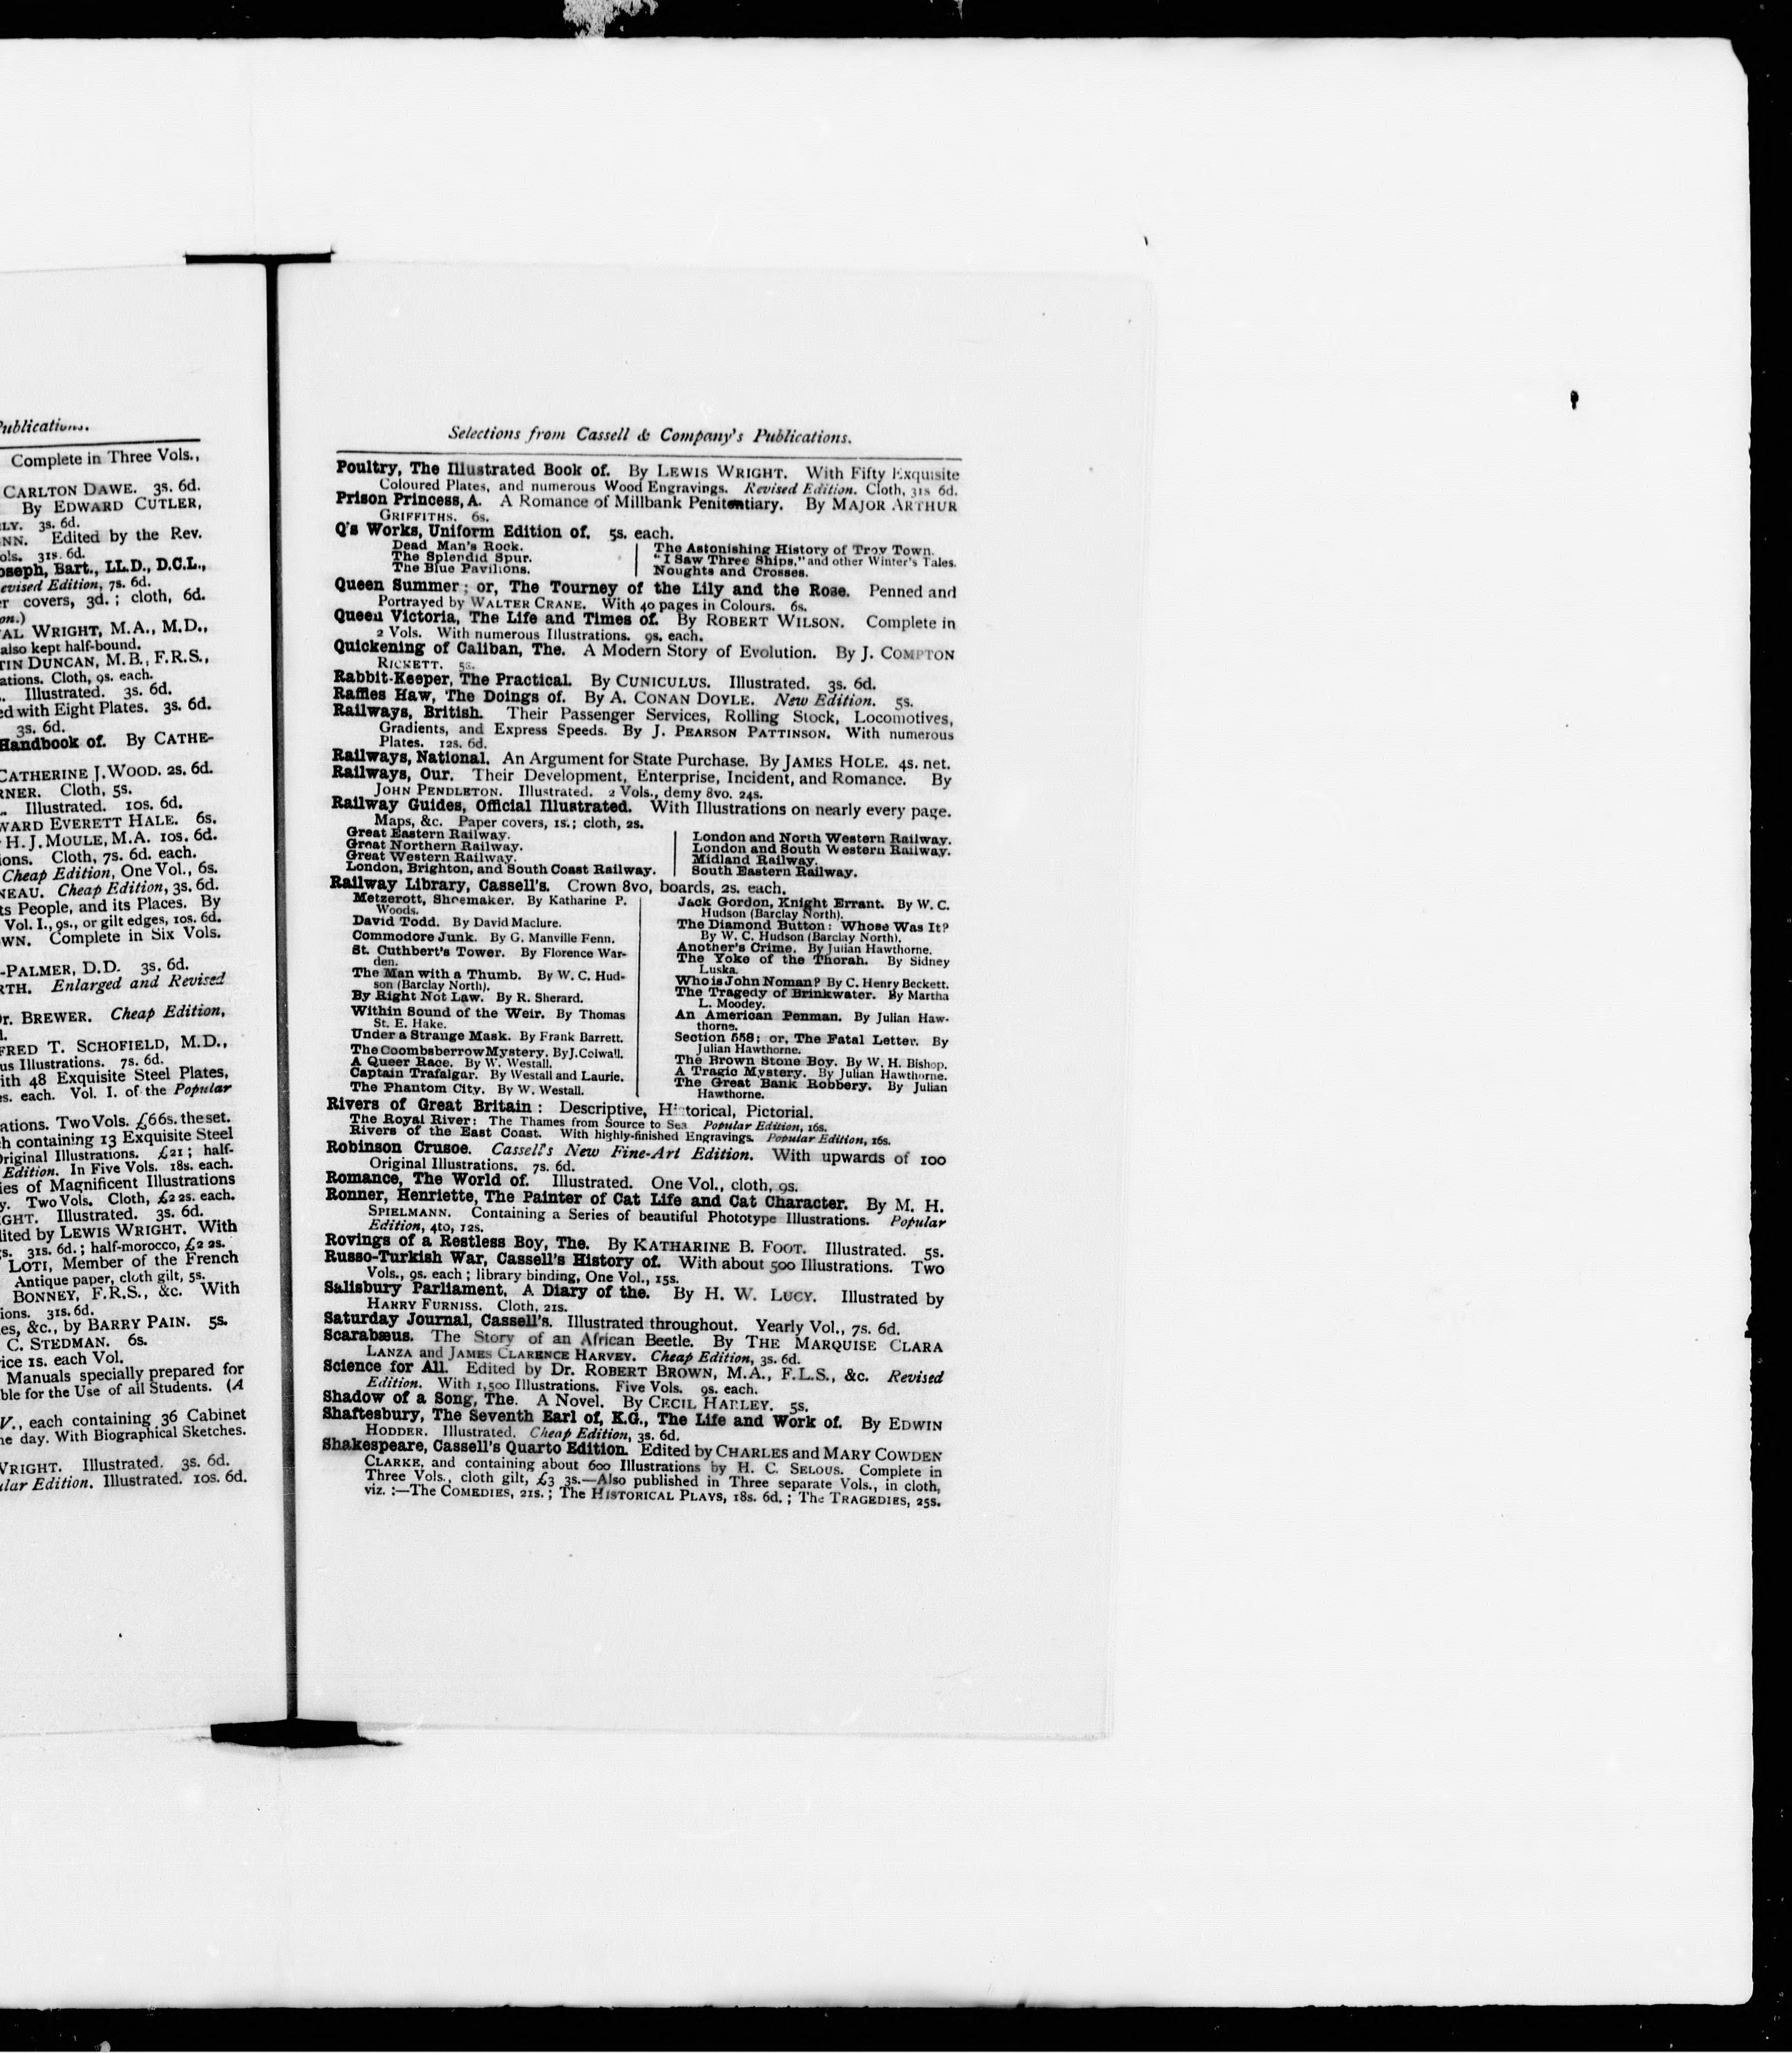 Publications.
Complete in Three Vols.,
CARLTON DAWE. 3s. 6d.
By EDWARD CUTLER,
LY. 3s. 6d.
NN. Edited by the Rev.
ols. 31s. 6d.
oseph, Bart., LL.D., D.C.L.,
evised Edition, 7s. 6d.
er covers, 3d.; cloth, 6d.
on.)
AL WRIGHT, M.A., M.D.,
also kept half-bound.
TIN DUNCAN, M.B., F.R.S.,
ations. Cloth, 9s. each.
. Illustrated. 3s. 6d.
ed with Eight Plates. 3s. 6d.
3s. 6d.
Handbook of. By CATHE-
CATHERINE J. WOOD. 2s. 6d.
RNER. Cloth, 5s.
. Illustrated. 10s. 6d.
WARD EVERETT HALE. 6s.
H. J. MOULE, M.A. 10s. 6d.
ions. Cloth, 7s. 6d. each.
Cheap Edition, One Vol., 6s.
NEAU. Cheap Edition, 3s. 6d.
ts People, and its Places. By
Vol. I., 9s., or gilt edges, 10s. 6d.
OWN. Complete in Six Vols.
-PALMER, D.D. 3s. 6d.
RTH. Enlarged and Revised
Dr. BREWER. Cheap Edition,
d.
FRED T. SCHOFIELD, M.D.,
us Illustrations. 7s. 6d.
ith 48 Exquisite Steel Plates,
s. each. Vol. I. of the Popular
ations. Two Vols. £6 6s. the set.
h containing 13 Exquisite Steel
Original Illustrations. £21; half-
Edition. In Five Vols. 18s. each.
ies of Magnificent Illustrations
y. Two Vols. Cloth, £2 2s. each.
GHT. Illustrated. 3s. 6d.
dited by LEWIS WRIGHT. With
s. 31s. 6d.; half-morocco, £2 2s.
LOTI, Member of the French
Antique paper, cloth gilt, 5s.
BONNEY, F.R.S., &c. With
ions. 31s. 6d.
es, &c., by BARRY PAIN. 5s.
C. STEDMAN. 6s.
ice 1s. each Vol.
Manuals specially prepared for
ble for the Use of all Students. (A
V., each containing 36 Cabinet
he day. With Biographical Sketches.
WRIGHT. Illustrated. 3s. 6d.
ular Edition. Illustrated. 10s. 6d.
Selections from Cassell & Company's Publications.
Poultry, The Illustrated Book of. By LEWIS WRIGHT. With Fifty Exquisite
Coloured Plates, and numerous Wood Engravings. Revised Edition. Cloth, 31s 6d.
Prison Princess, A. A Romance of Millbank Penitentiary. By MAJOR ARTHUR
GRIFFITHS. 6s.
Q's Works, Uniform Edition of. 5s. each.
Dead Man's Rock.
The Splendid Spur.
The Blue Pavilions.
The Astonishing History of Troy Town.
"I Saw Three Ships," and other Winter's Tales.
Noughts and Crosses.
Queen Summer; or, The Tourney of the Lily and the Rose. Penned and
Portrayed by WALTER CRANE. With 40 pages in Colours. 6s.
Queen Victoria, The Life and Times of. By ROBERT WILSON. Complete in
2 Vols. With numerous Illustrations. 9s. each.
Quickening of Caliban, The. A Modern Story of Evolution. By J. COMPTON
RICKETT. 5s.
Rabbit-Keeper, The Practical. By CUNICULUS. Illustrated. 3s. 6d.
Raffles Haw, The Doings of. By A. CONAN DOYLE. New Edition. 5s.
Railways, British. Their Passenger Services, Rolling Stock, Locomotives,
Gradients, and Express Speeds. By J. PEARSON PATTINSON. With numerous
Plates. 12s. 6d.
Railways, National. An Argument for State Purchase. By JAMES HOLE. 4s. net.
Railways, Our. Their Development, Enterprise, Incident, and Romance. By
JOHN PENDLETON. Illustrated. 2 Vols., demy 8vo. 24s.
Railway Guides, Official Illustrated. With Illustrations on nearly every page.
Maps, &c. Paper covers, 1s.; cloth, 2s.
Great Eastern Railway.
Great Northern Railway.
Great Western Railway.
London, Brighton, and South Coast Railway.
London and North Western Railway.
London and South Western Railway.
Midland Railway.
South Eastern Railway.
Railway Library, Cassell's. Crown 8vo, boards, 2s. each.
Metzerott, Shoemaker. By Katharine P.
Woods.
David Todd. By David Maclure.
Commodore Junk. By G. Manville Fenn.
St. Cuthbert's Tower. By Florence War-
den.
The Man with a Thumb. By W. C. Hud-
son (Barclay North).
By Right Not Law. By R. Sherard.
Within Sound of the Weir. By Thomas
St. E. Hake.
Under a Strange Mask. By Frank Barrett.
The Coombsberrow Mystery. By J. Colwall.
A Queer Race. By W. Westall.
Captain Trafalgar. By Westall and Laurie.
The Phantom City. By W. Westall.
Jack Gordon, Knight Errant. By W. C.
Hudson (Barclay North).
The Diamond Button: Whose Was It?
By W. C. Hudson (Barclay North).
Another's Crime. By Julian Hawthorne.
The Yoke of the Thorah. By Sidney
Luska.
Who is John Noman? By C. Henry Beckett.
The Tragedy of Brinkwater. By Martha
L. Moodey.
An American Penman. By Julian Haw-
thorne.
Section 558; or, The Fatal Letter. By
Julian Hawthorne.
The Brown Stone Boy. By W. H. Bishop.
A Tragic Mystery. By Julian Hawthorne.
The Great Bank Robbery. By Julian
Hawthorne.
Rivers of Great Britain: Descriptive, Historical, Pictorial.
The Royal River: The Thames from Source to Sea Popular Edition, 16s.
Rivers of the East Coast. With highly-finished Engravings. Popular Edition, 16s.
Robinson Crusoe. Cassell's New Fine-Art Edition. With upwards of 100
Original Illustrations. 7s. 6d.
Romance, The World of. Illustrated. One Vol., cloth, 9s.
Ronner, Henriette, The Painter of Cat Life and Cat Character. By M. H.
SPIELMANN. Containing a Series of beautiful Phototype Illustrations. Popular
Edition, 4to, 12s.
Rovings of a Restless Boy, The. By KATHARINE B. FOOT. Illustrated. 5s.
Russo-Turkish War, Cassell's History of. With about 500 Illustrations. Two
Vols., 9s. each; library binding, One Vol., 15s.
Salisbury Parliament, A Diary of the. By H. W. LUCY. Illustrated by
HARRY FURNISS. Cloth, 21s.
Saturday Journal, Cassell's. Illustrated throughout. Yearly Vol., 7s. 6d.
Scarabæus. The Story of an African Beetle. By THE MARQUISE CLARA
LANZA and JAMES CLARENCE HARVEY. Cheap Edition, 3s. 6d.
Science for All. Edited by Dr. ROBERT BROWN, M.A., F.L.S., &c. Revised
Edition. With 1,500 Illustrations. Five Vols. 9s. each.
Shadow of a Song, The. A Novel. By CECIL HARLEY. 5s.
Shaftesbury, The Seventh Earl of, K.G., The Life and Work of. By EDWIN
HODDER. Illustrated. Cheap Edition, 3s. 6d.
Shakespeare, Cassell's Quarto Edition. Edited by CHARLES and MARY COWDEN
CLARKE, and containing about 600 Illustrations by H. C. SELOUS. Complete in
Three Vols., cloth gilt, £3 3s.—Also published in Three separate Vols., in cloth,
viz.:—The COMEDIES, 21s.; The HISTORICAL PLAYS, 18s. 6d.; The TRAGEDIES, 25s.